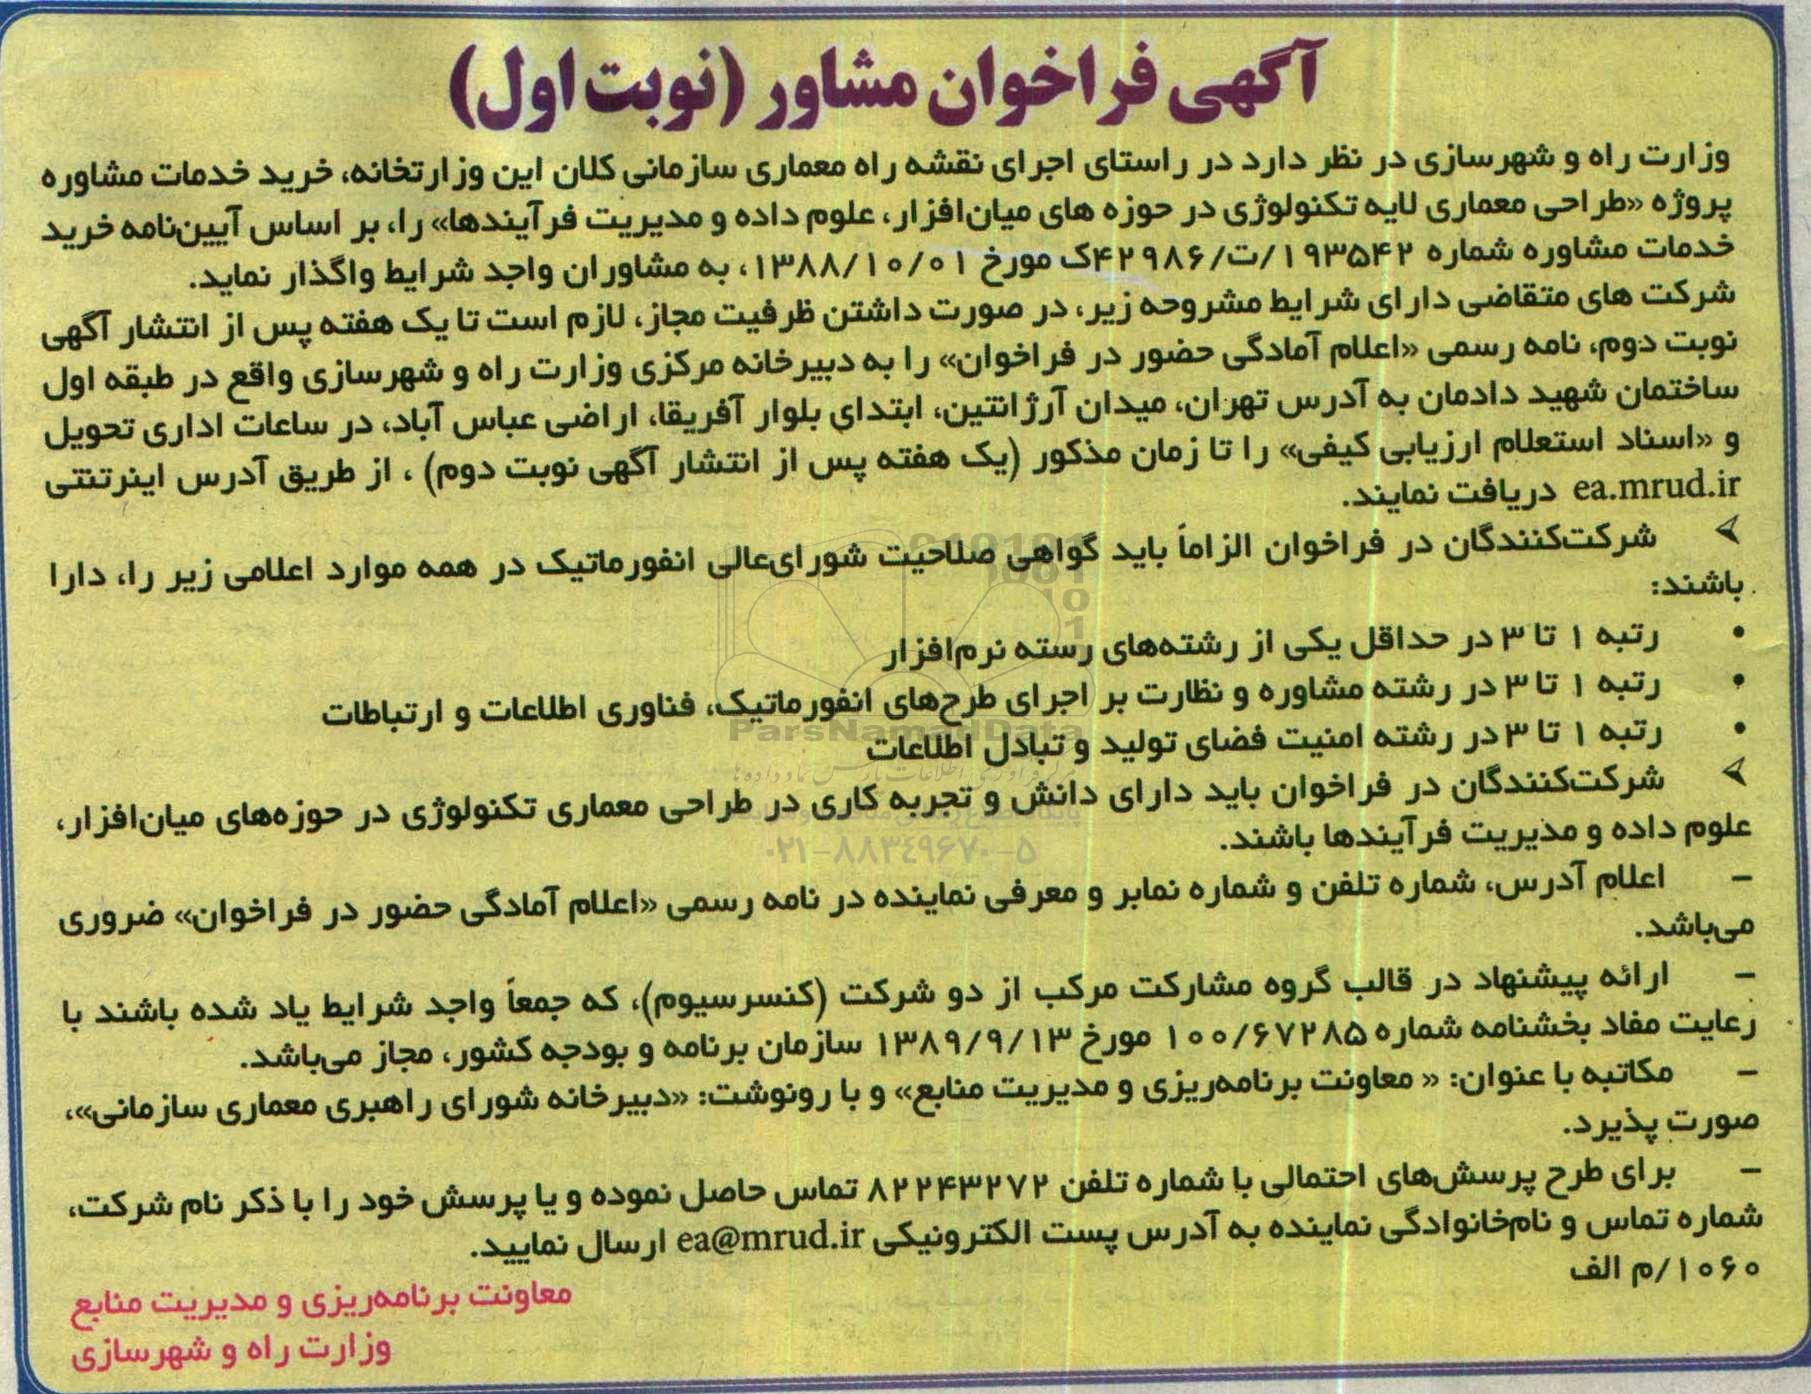 آگهی فراخوان مشاور (نوبت اول)
وزارت راه و شهرسازی در نظر دارد در راستای اجرای نقشه راه معماری سازمانی کلان این وزارتخانه، خرید خدمات مشاوره
پروژه «طراحی معماری لایه تکنولوژی در حوزه های میان‌افزار، علوم داده و مدیریت فرآیندها» را، بر اساس آیین‌نامه خرید
خدمات مشاوره شماره ۱۹۳۵۴۲/ت/۴۲۹۸۶ک مورخ ۱۳۸۸/۱۰/۰۱، به مشاوران واجد شرایط واگذار نماید.
شرکت های متقاضی دارای شرایط مشروحه زیر، در صورت داشتن ظرفیت مجاز، لازم است تا یک هفته پس از انتشار آگهی
نوبت دوم، نامه رسمی «اعلام آمادگی حضور در فراخوان» را به دبیرخانه مرکزی وزارت راه و شهرسازی واقع در طبقه اول
ساختمان شهید دادمان به آدرس تهران، میدان آرژانتین، ابتدای بلوار آفریقا، اراضی عباس آباد، در ساعات اداری تحویل
و «اسناد استعلام ارزیابی کیفی» را تا زمان مذکور (یک هفته پس از انتشار آگهی نوبت دوم) ، از طریق آدرس اینرتنتی
ea.mrud.ir دریافت نمایند.
➢ شرکت‌کنندگان در فراخوان الزاماً باید گواهی صلاحیت شورای‌عالی انفورماتیک در همه موارد اعلامی زیر را، دارا
باشند:
• رتبه ۱ تا ۳ در حداقل یکی از رشته‌های رسته نرم‌افزار
• رتبه ۱ تا ۳ در رشته مشاوره و نظارت بر اجرای طرح‌های انفورماتیک، فناوری اطلاعات و ارتباطات
• رتبه ۱ تا ۳ در رشته امنیت فضای تولید و تبادل اطلاعات
➢ شرکت‌کنندگان در فراخوان باید دارای دانش و تجربه کاری در طراحی معماری تکنولوژی در حوزه‌های میان‌افزار،
علوم داده و مدیریت فرآیندها باشند.
– اعلام آدرس، شماره تلفن و شماره نمابر و معرفی نماینده در نامه رسمی «اعلام آمادگی حضور در فراخوان» ضروری
می‌باشد.
– ارائه پیشنهاد در قالب گروه مشارکت مرکب از دو شرکت (کنسرسیوم)، که جمعاً واجد شرایط یاد شده باشند با
رعایت مفاد بخشنامه شماره ۱۰۰/۶۷۲۸۵ مورخ ۱۳۸۹/۹/۱۳ سازمان برنامه و بودجه کشور، مجاز می‌باشد.
– مکاتبه با عنوان: « معاونت برنامه‌ریزی و مدیریت منابع» و با رونوشت: «دبیرخانه شورای راهبری معماری سازمانی»،
صورت پذیرد.
– برای طرح پرسش‌های احتمالی با شماره تلفن ۸۲۲۴۳۲۷۲ تماس حاصل نموده و یا پرسش خود را با ذکر نام شرکت،
شماره تماس و نام‌خانوادگی نماینده به آدرس پست الکترونیکی ea@mrud.ir ارسال نمایید.
۱۰۶۰/م الف
معاونت برنامه‌ریزی و مدیریت منابع
وزارت راه و شهرسازی
ParsNamadData
۰۲۱-۸۸۳۴۹۶۷۰-۵